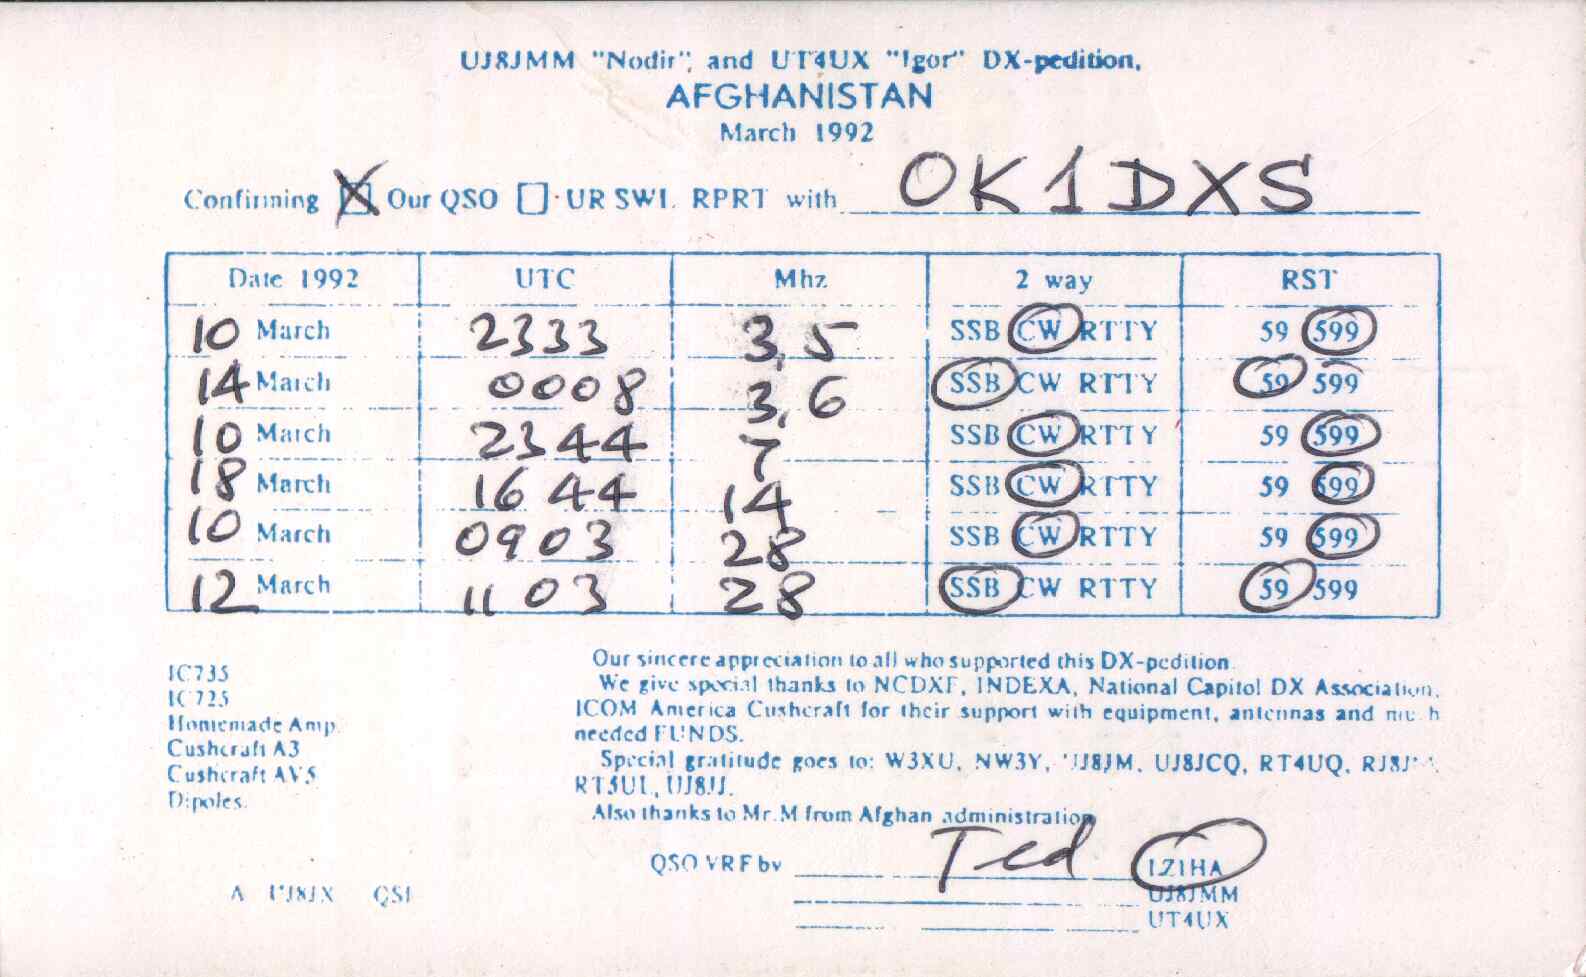 UJ8JMM "Nodir", and UT4UX "Igor" DX-pedition,
AFGHANISTAN
March 1992
Confirming Our QSO UR SWL RPRT with OK1DXS
Date 1992 UTC Mhz 2 way RST
10 March 2333 3,5 SSB CW RTTY 59 599
14 March 0008 3,6 SSB CW RTTY 59 599
10 March 2344 7 SSB CW RTTY 59 599
18 March 1644 14 SSB CW RTTY 59 599
10 March 0903 28 SSB CW RTTY 59 599
12 March 1103 28 SSB CW RTTY 59 599
IC735
IC725
Homemade Amp.
Cushcraft A3
Cushcraft AV5
Dipoles.
Our sincere appreciation to all who supported this DX-pedition.
We give special thanks to NCDXF, INDEXA, National Capitol DX Association,
ICOM America Cushcraft for their support with equipment, antennas and much
needed FUNDS.
Special gratitude goes to: W3XU, NW3Y, UJ8JM, UJ8JCQ, RT4UQ,
RT5UL, UJ8JJ.
Also thanks to Mr.M from Afghan administration
QSO VRF by Ted LZ1HA
UJ8JMM
UT4UX
A UJ8JX QSL